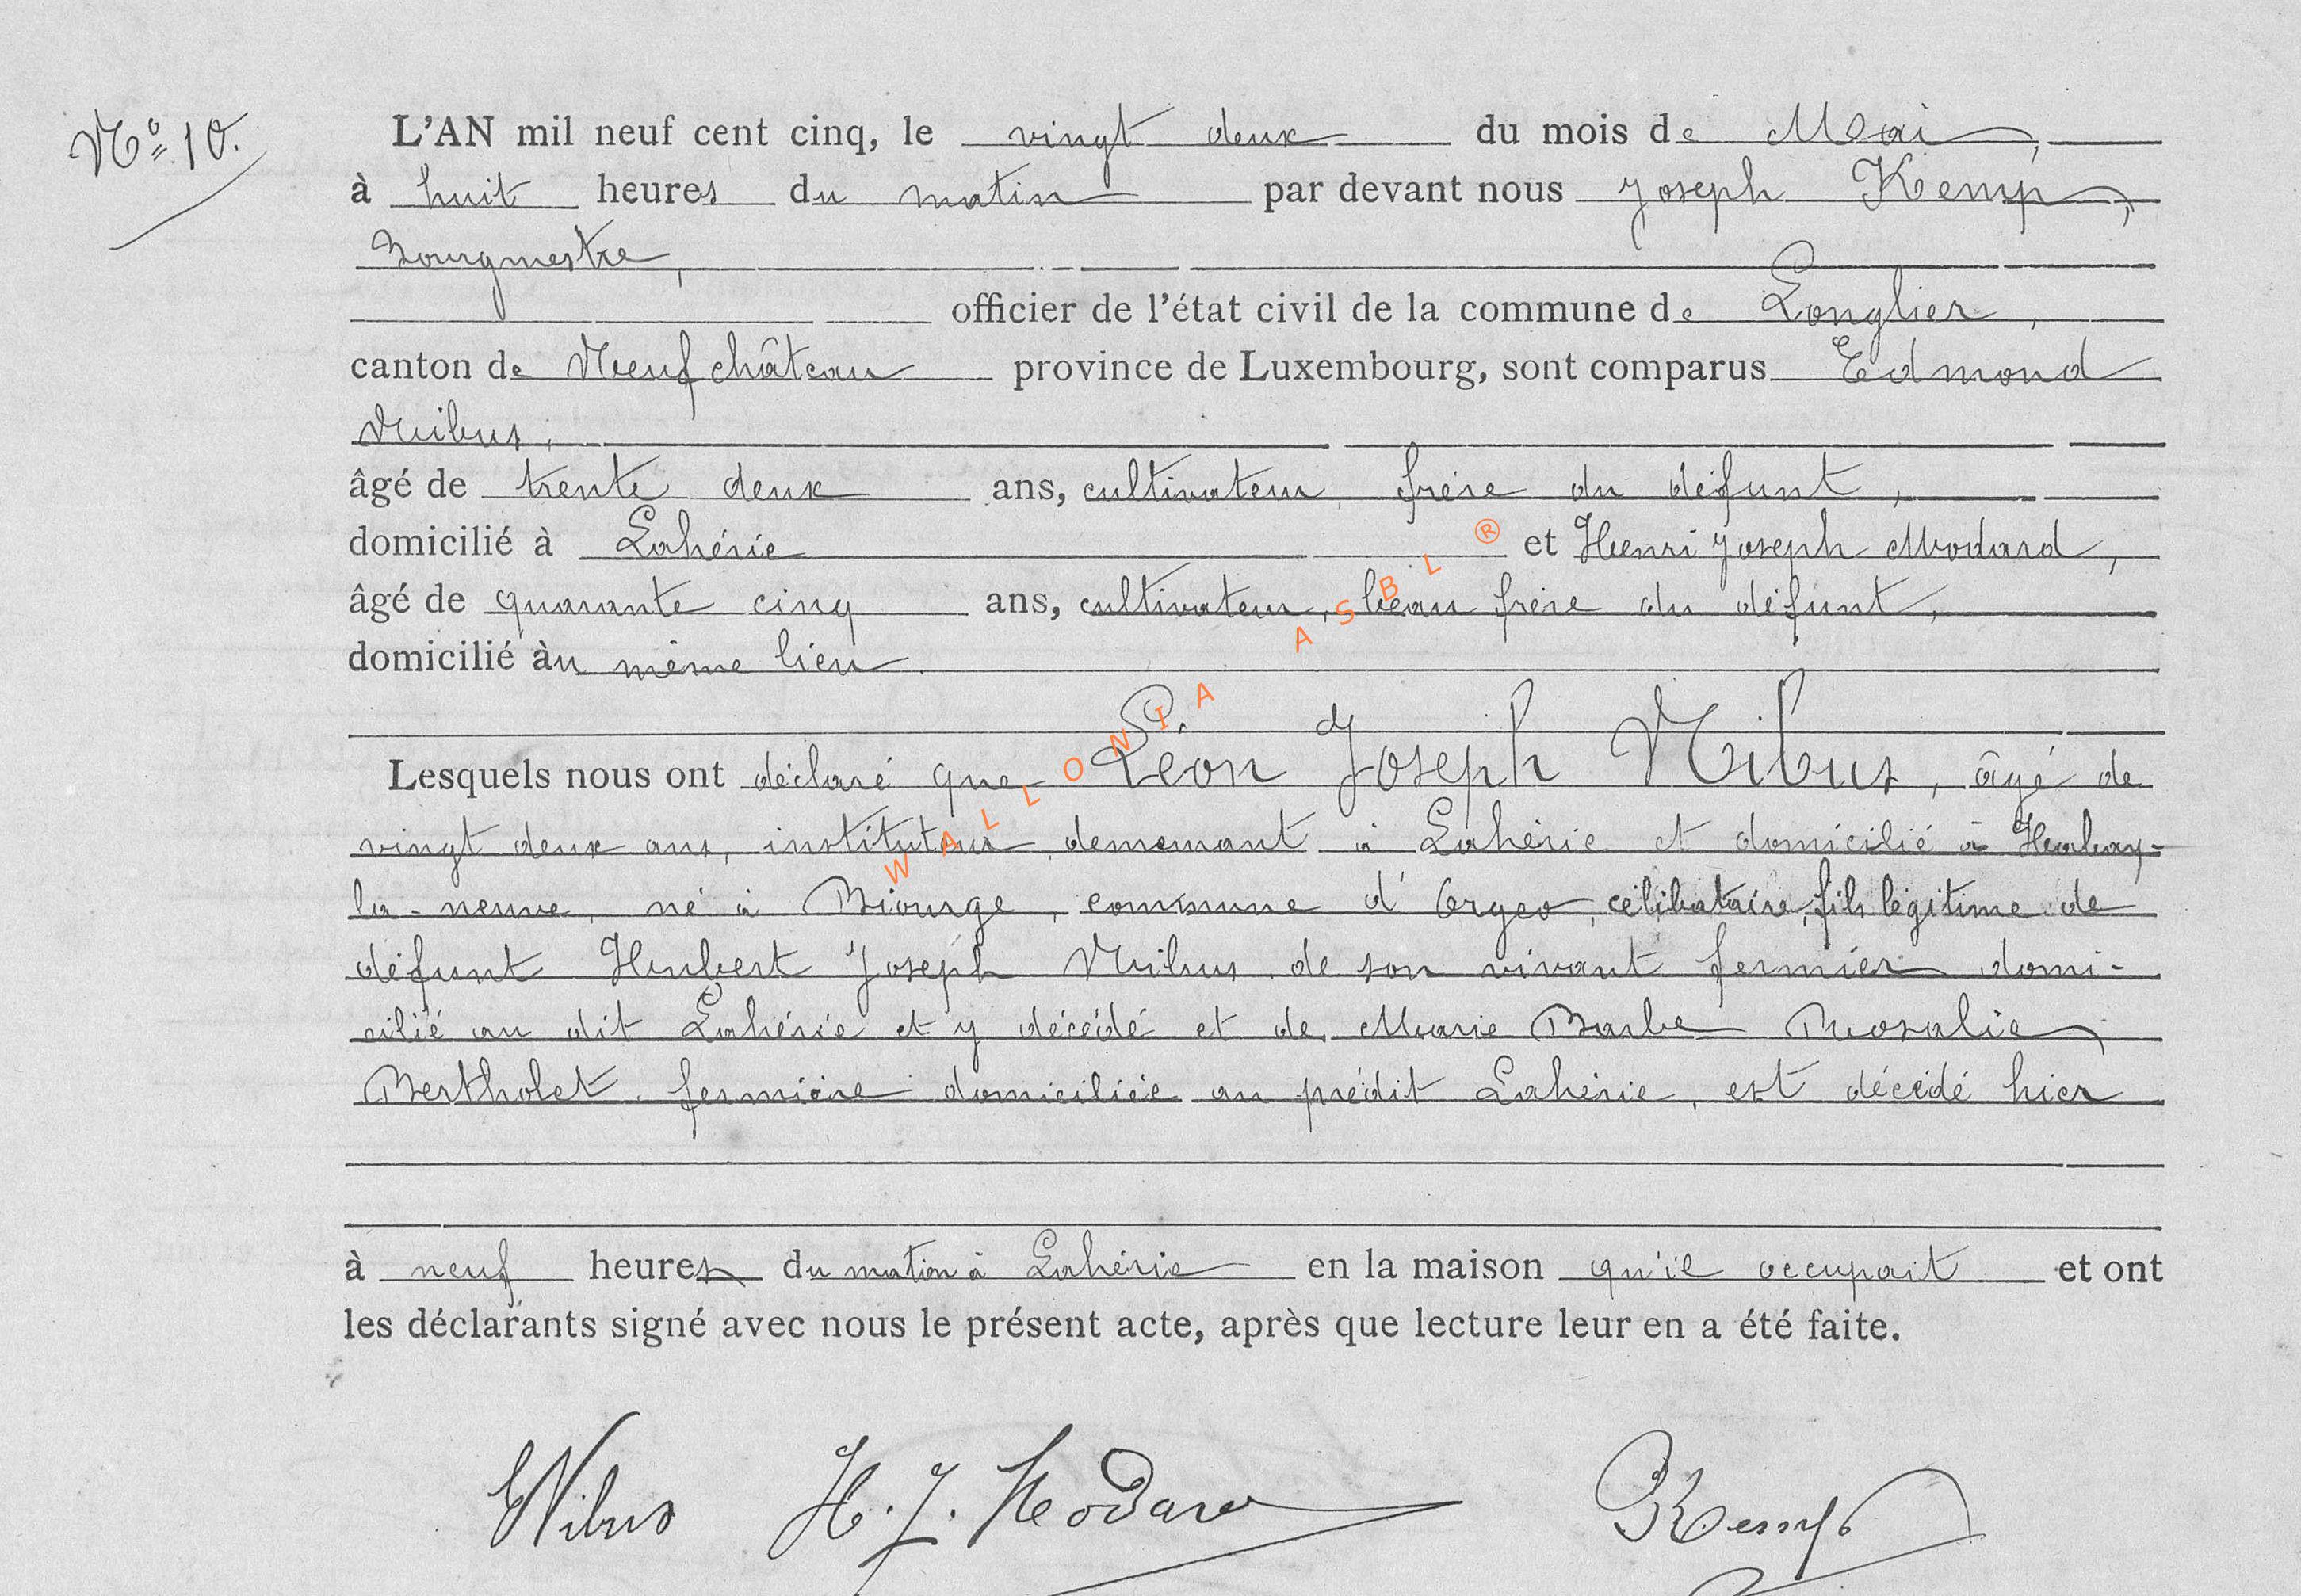 Nº 10.
L'AN mil neuf cent cinq, le vingt deux du mois de Mai,
à huit heures du matin par devant nous Joseph Kemp,
Bourgmestre,
officier de l'état civil de la commune de Longlier,
canton de Neufchâteau province de Luxembourg, sont comparus Edmond
Nibus,
âgé de trente deux ans, cultivateur, frère du défunt,
domicilié à Lahérie et Henri Joseph Modard,
âgé de quarante cinq ans, cultivateur, beau frère du défunt,
domicilié au même lieu.
Lesquels nous ont déclaré que Léon Joseph Nibus, âgé de
vingt deux ans, instituteur, demeurant à Lahérie et domicilié à Habay-
la-neuve, né à Biourge, commune d'Orgeo, célibataire, fils légitime de
défunt Hubert Joseph Nibus de son vivant fermier domi-
cilié au dit Lahérie et y décédé et de Marie Barbe Rosalie
Bertholet, fermière domiciliée au prédit Lahérie, est décédé hier
à neuf heures du matin à Lahérie en la maison qu'il occupait et ont
les déclarants signé avec nous le présent acte, après que lecture leur en a été faite.
ENibus H. J. Modard Kemp
WALLONIA ASBL ®